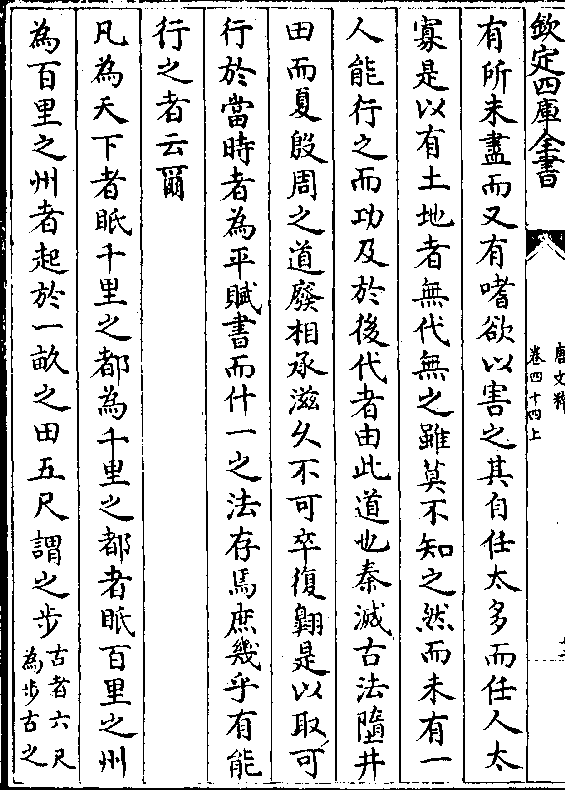 欽定四庫全書
唐文粹
卷四十四上
有所未盡而又有嗜欲以害之其自任太多而任人太
寡是以有土地者無代無之雖莫不知之然而未有一
人能行之而功及於後代者由此道也秦滅古法隳井
田而夏殷周之道廢相承滋久不可卒復翺是以取可
行於當時者為平賦書而什一之法存焉庶幾乎有能
行之者云爾
凡為天下者眂千里之都為千里之都者眂百里之州
為百里之州者起於一畝之田五尺謂之步古者六尺
為步古之